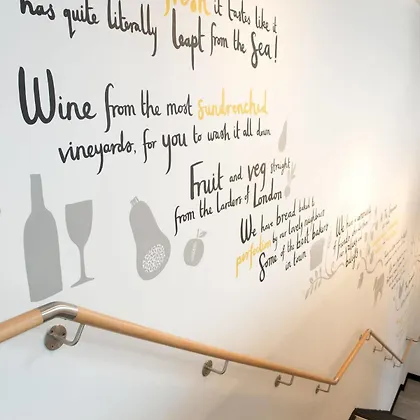 fresh it tastes like it
has quite literally leapt from the Sea!
Wine from the most sundrenched
vineyards, for you to wash it all down
Fruit and veg straight
from the larders of London
We have bread baked to
perfection by our lovely neighbours
Some of the best bakers
in town
We have a